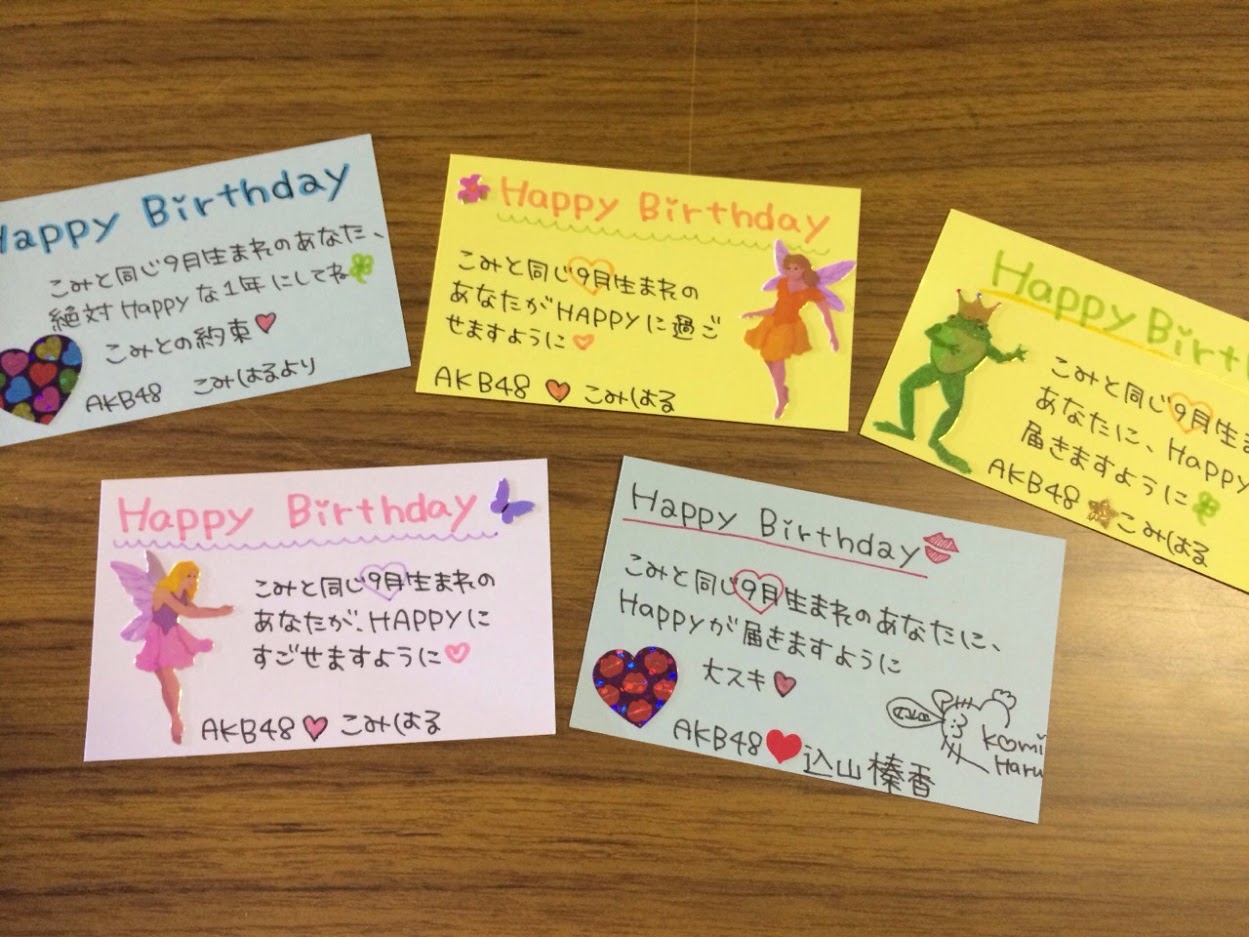 Happy Birthday
こみと同じ9月生まれのあなた、
絶対Happyな1年にしてね
こみとの約束
AKB48 こみはるより
Happy Birthday
こみと同じ9月生まれの
あなたがHAPPYに過ご
せますように
AKB48 こみはる
Happy Birt
こみと同じ9月生ま
あなたに、Happy
届きますように
AKB48 こみはる
Happy Birthday
こみと同じ9月生まれの
あなたが、HAPPYに
すごせますように
AKB48 こみはる
Happy Birthday
こみと同じ9月生まれのあなたに、
Happyが届きますように
大スキ
AKB48 込山榛香
Komi
Haru